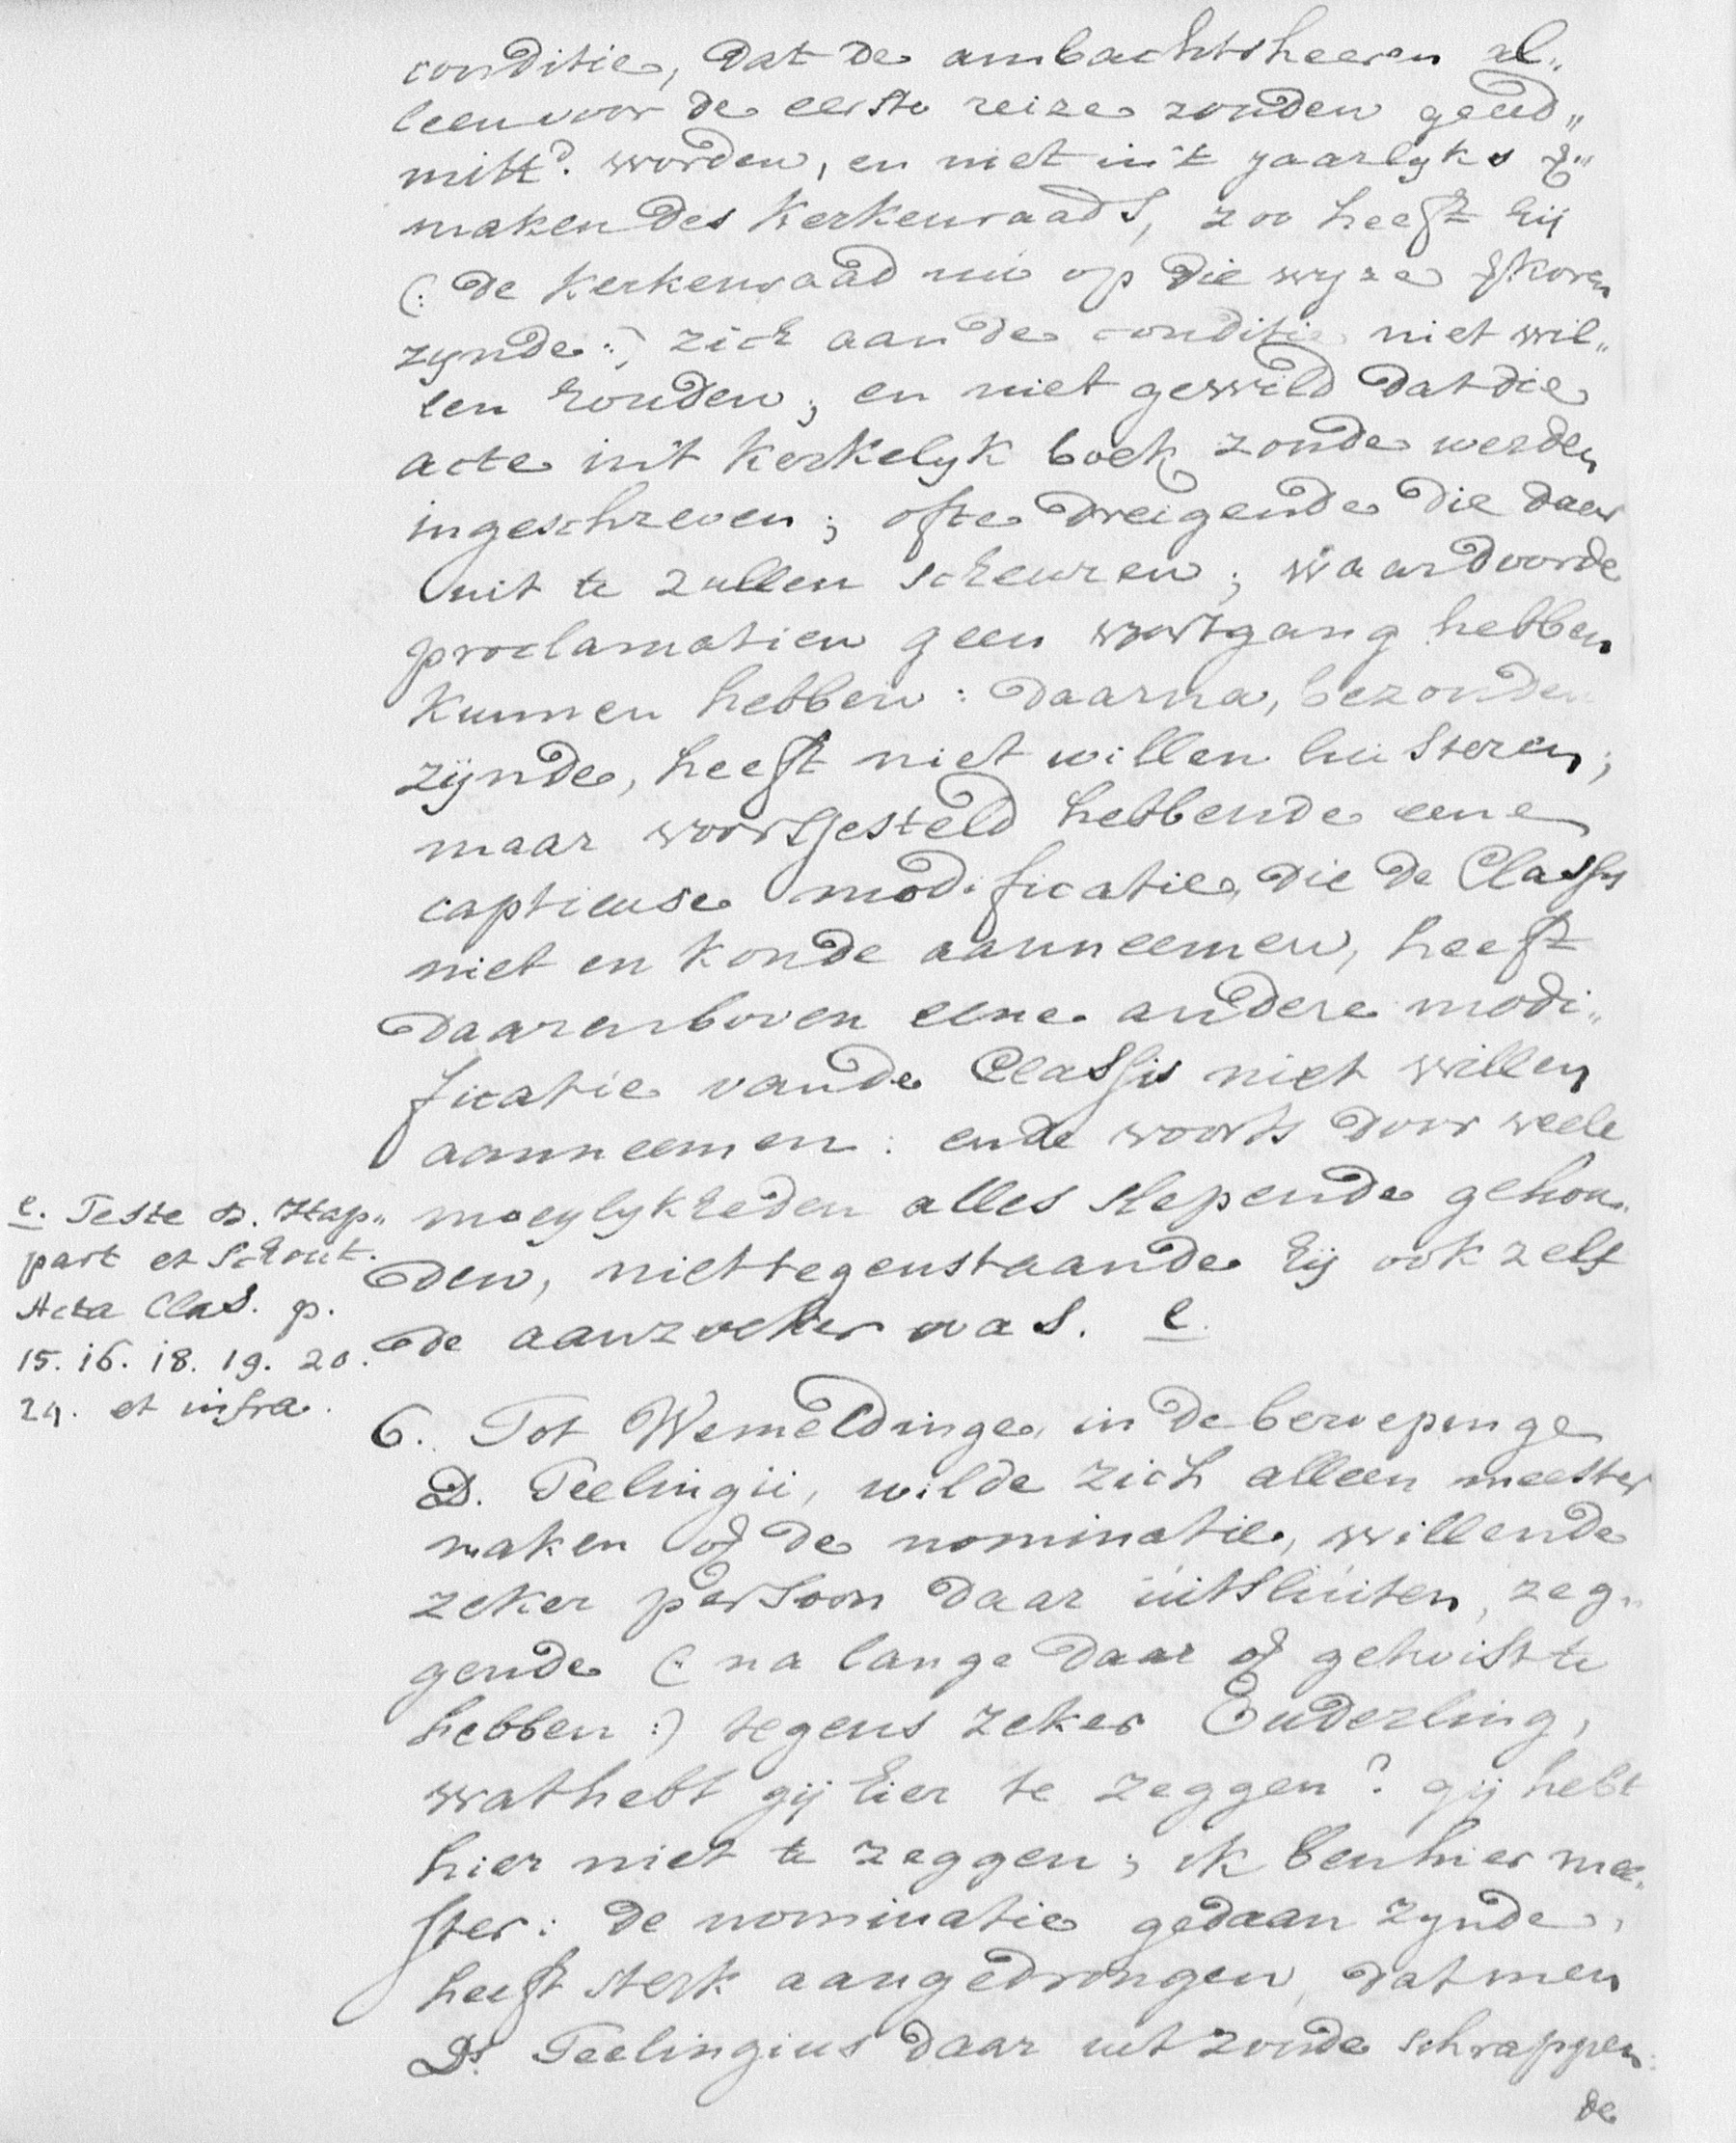 conditie, dat de ambachtsheeren al„
leen voor de eerste reize zouden gead„
mittd. worden, en niet in't jaarlyks ver„
maken des Kerkenraads, zoo heeft hij
(: de Kerkenraad nu op die wyze verkoren
zynde :) zich aan de conditie niet wil„
len houden; en niet gewild dat die
acte in't Kerkelyk boek zoude werden
ingeschreven; ofte dreigende die daar
uit te zullen scheuren; waar door de
proclamatien geen voortgang hebben
kunnen hebben: daarna, bezonden
zijnde, heeft niet willen luisteren;
maar voorgesteld hebbende eene
captieuse modificatie, die de Classis
niet en konde aanneemen, heeft
daarenboven eene andere modi„
ficatie van de Classis niet willen
aanneemen: ende voorts door veele
moeylykheden alles slepende gehou„
den, niettegenstaande hij ook zelf
de aanzoeker was. e.
e. Teste D. Hap„
part et Schout.
Acta Clas. p.
15. 16. 18. 19. 20.
24. et infra.
6. Tot Wemeldinge, in de beroepinge
D. Teelingii, wilde zich alleen meester
maken of de nominatie, willende
zeker persoon daar uitsluiten, zeg„
gende (: na lange daar of getwist te
hebben :) tegens zeker Ouderling,
wat hebt gij hier te zeggen? gij hebt
hier niet te zeggen; ik ben hier mee„
ster: de nominatie gedaan zynde,
heeft sterk aangedrongen, dat men
Ds. Teelingius daar uit zoude schrappen:
de